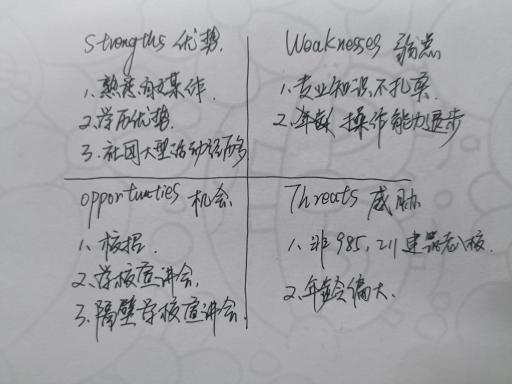 Strengths 优势.
1、熟悉
2、学历优势.
3、社团大型活动经历多
Weaknesses 弱点
1、专业知识不扎实.
2、年龄、操作能力退步
opportunities 机会
1、校招.
2、学校宣讲会.
3、隔壁学校宣讲会.
Threats 威胁
1、非985,211 建筑老八校.
2、年龄偏大.